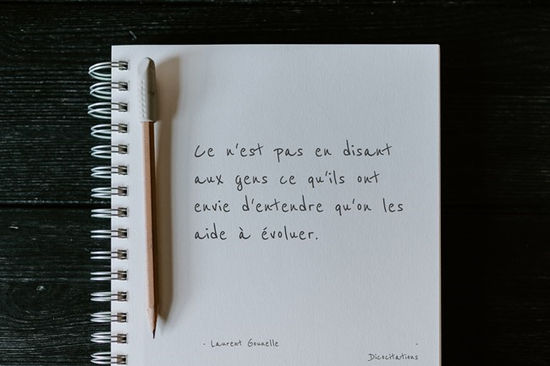 Ce n'est pas en disant
aux gens ce qu'ils ont
envie d'entendre qu'on les
aide à évoluer.
- Laurent Gounelle -
Dicocitations